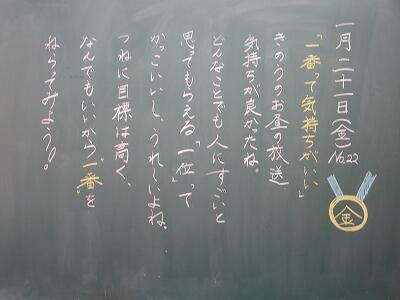 一月二十一日(金)No.22
「一番って気持ちがいい」
きのうのお昼の放送
気持ちが良かったね。
どんなことでも人にすごいと
思ってもらえる「一位」って
かっこいいし、うれしいよね。
つねに目標は高く、
なんでもいいから"一番"を
ねらってみよう!!
金